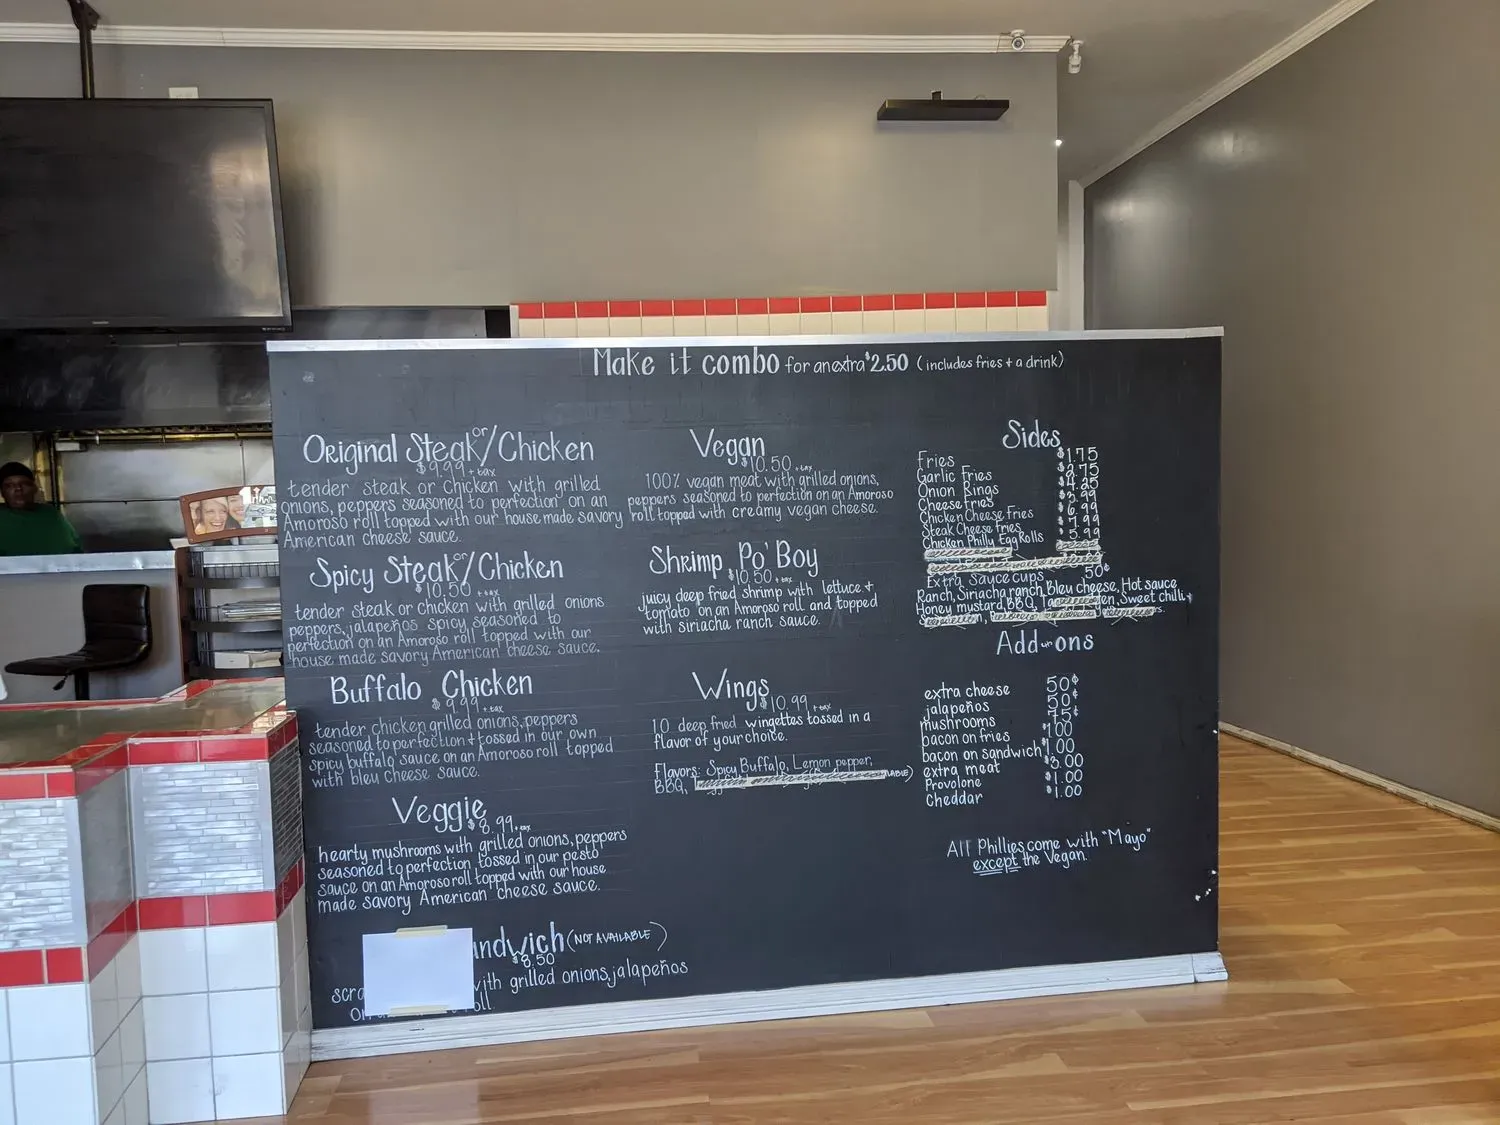 Make it combo for an extra $2.50 (includes fries + a drink)
Original Steak or/Chicken
$9.99 + tax
tender steak or chicken with grilled
onions, peppers seasoned to perfection on an
Amoroso roll topped with our house made savory
American cheese sauce.
Spicy Steak or/Chicken
$10.50 + tax
tender steak or chicken with grilled onions
peppers, jalapeños spicy seasoned to
perfection on an Amoroso roll topped with our
house made savory American cheese sauce.
Buffalo Chicken
$9.99 + tax
tender chicken grilled onions, peppers
seasoned to perfection + tossed in our own
spicy buffalo sauce on an Amoroso roll topped
with bleu cheese sauce.
Veggie
$8.99 + tax
hearty mushrooms with grilled onions, peppers
seasoned to perfection tossed in our pesto
sauce on an Amoroso roll topped with our house
made savory American cheese sauce.
andwich (NOT AVAILABLE)
$8.50
scra with grilled onions, jalapeños
on roll
Vegan
$10.50 + tax
100% vegan meat with grilled onions,
peppers seasoned to perfection on an Amoroso
roll topped with creamy vegan cheese.
Shrimp Po' Boy
$10.50 + tax
juicy deep fried shrimp with lettuce +
tomato on an Amoroso roll and topped
with siriacha ranch sauce.
Wings
$10.99 + tax
10 deep fried wingettes tossed in a
flavor of your choice.
Flavors: Spicy Buffalo, Lemon pepper,
BBQ,
Sides
Fries $1.75
Garlic Fries $2.75
Onion Rings $4.25
Cheese Fries $3.99
Chicken Cheese Fries $6.99
Steak Cheese Fries $7.99
Chicken Philly Egg Rolls $5.99
Extra Sauce Cups 50¢
Ranch, Siriacha ranch, Bleu cheese, Hot sauce,
Honey mustard, BBQ, Sweet chilli,
Add-ons
extra cheese 50¢
jalapeños 50¢
mushrooms 75¢
bacon on fries $1.00
bacon on sandwich $1.00
extra meat $3.00
Provolone $1.00
Cheddar $1.00
All Phillies come with "Mayo"
except the Vegan.